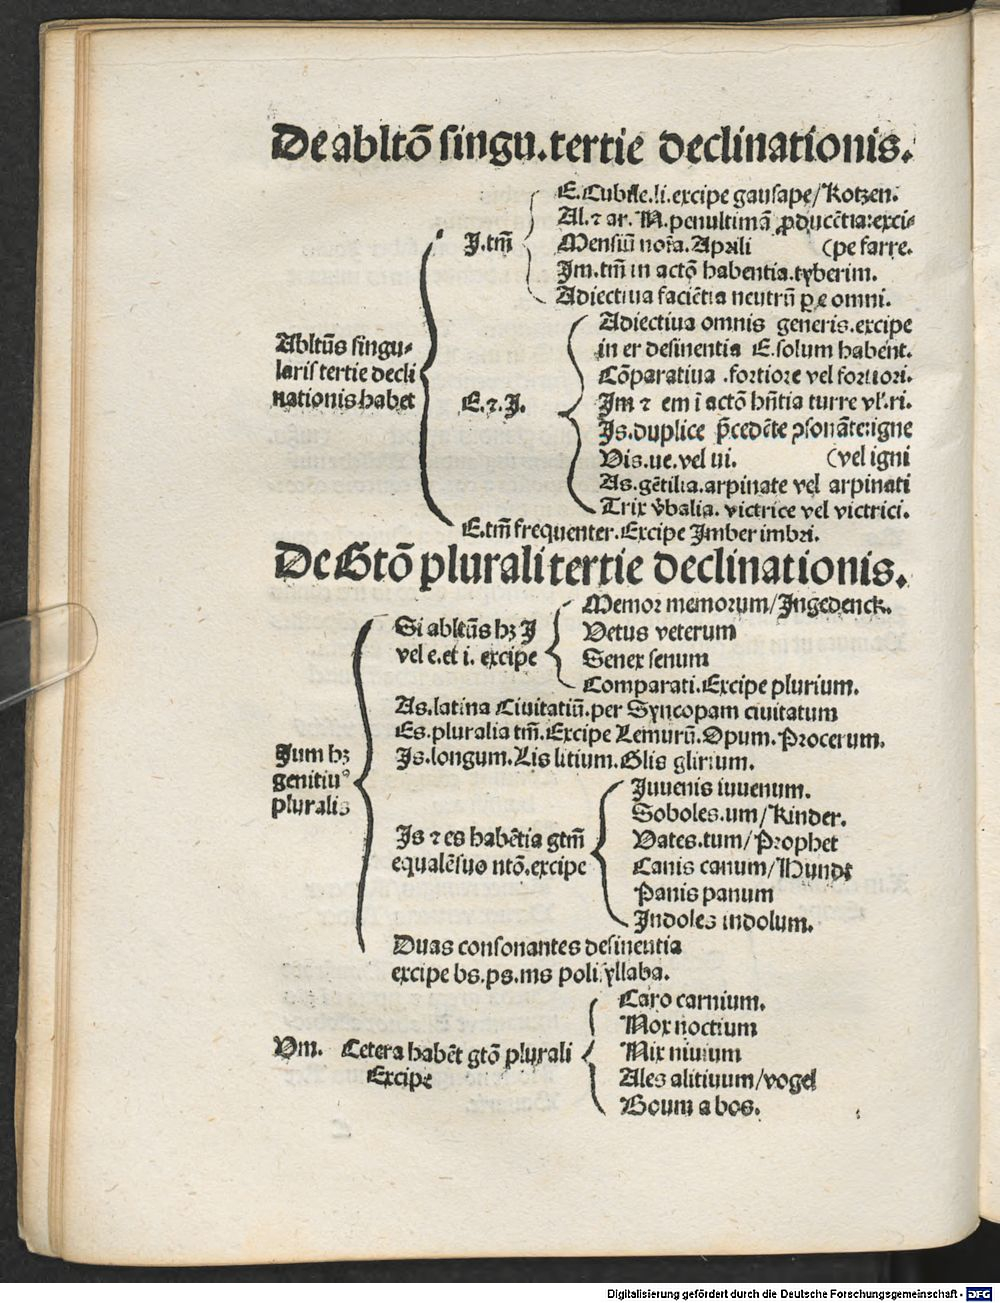 De abltō singu.tertie declinationis.
E.Cubile.li.excipe gausape/Kotzen.
Al.⁊ ar. N.penultimā ꝓducētia:exci-
J.tm̄ Mensiū noīa.Aprili (pe farre.
Im.tm̄ in actō habentia.tyberim.
Adiectiua faciētia neutrū ꝑ e omni.
Adiectiua omnis generis.excipe
Abltūs singu- in er desinentia E.solum habent.
laris tertie decli Cōparatiua .fortiore vel fortiori.
nationis habet E.⁊.J. Im ⁊ em ī actō hn̄tia turre vl'.ri.
Is.duplice p̄cedēte ꝯsonāte:igne
Vis.ue.vel ui. (vel igni
As.gētilia.arpinate vel arpinati
Trix v̄balia. victrice vel victrici.
E.tm̄ frequenter.Excipe Imber imbri.
De Gtō plurali tertie declinationis.
Memor memorum/Ingedenck.
Si abltūs hꝫ J Vetus veterum
vel e.et i. excipe Senex senum
Comparati.Excipe plurium.
As.latina Ciuitatiū.per Syncopam ciuitatum
Es.pluralia tm̄.Excipe Lemurū.Opum.Procerum.
Ium hꝫ Is.longum.Lis litium.Glis glirium.
genitiuꝰ Iuuenis iuuenum.
pluralis Soboles.um/Kinder.
Is ⁊ es habētia gtm̄ Vates.tum/Prophet
equalē suo ntō.excipe Canis canum/Hundt
Panis panum
Indoles indolum.
Duas consonantes desinentia
excipe bs.ps.ms poli.yllaba.
Caro carnium.
Nox noctium
Vm. Cetera habēt gtō plurali Nix niuium
Excipe Ales alituum/vogel
Boum a bos.
Digitalisierung gefördert durch die Deutsche Forschungsgemeinschaft - DFG